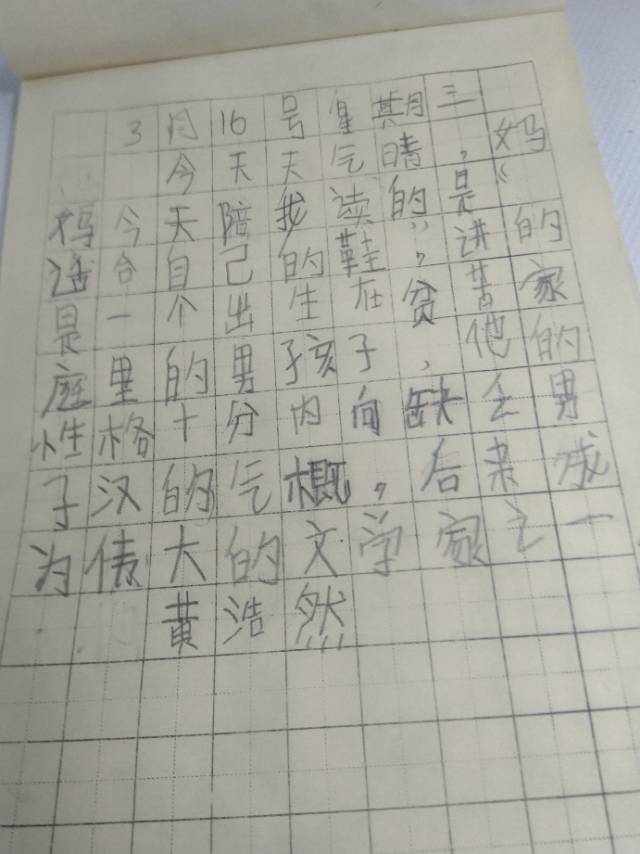 3月16号星期三
今天天气晴,妈
妈今天陪我读的是《
适合自己的鞋》,讲的
是一个出生在贫苦家
庭里的男孩子,他的
性格十分内向缺乏男
子汉的气概,后来成
为伟大的文学家之一
黄浩然